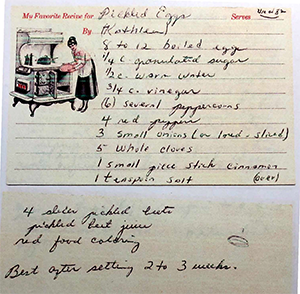 My Favorite Recipe for Pickled Eggs Serves
By Kathleen
8 to 12 boiled eggs
1/4 c. granulated sugar
1/2 c. warm water
3/4 c. vinegar
(6) several peppercorns
4 red peppers
3 small onions (or 1 sliced)
5 whole cloves
1 small piece stick cinnamon
1 teaspoon salt (over)
4 slider pickled beets
pickled beet juice
red food coloring
Best after setting 2 to 3 weeks.